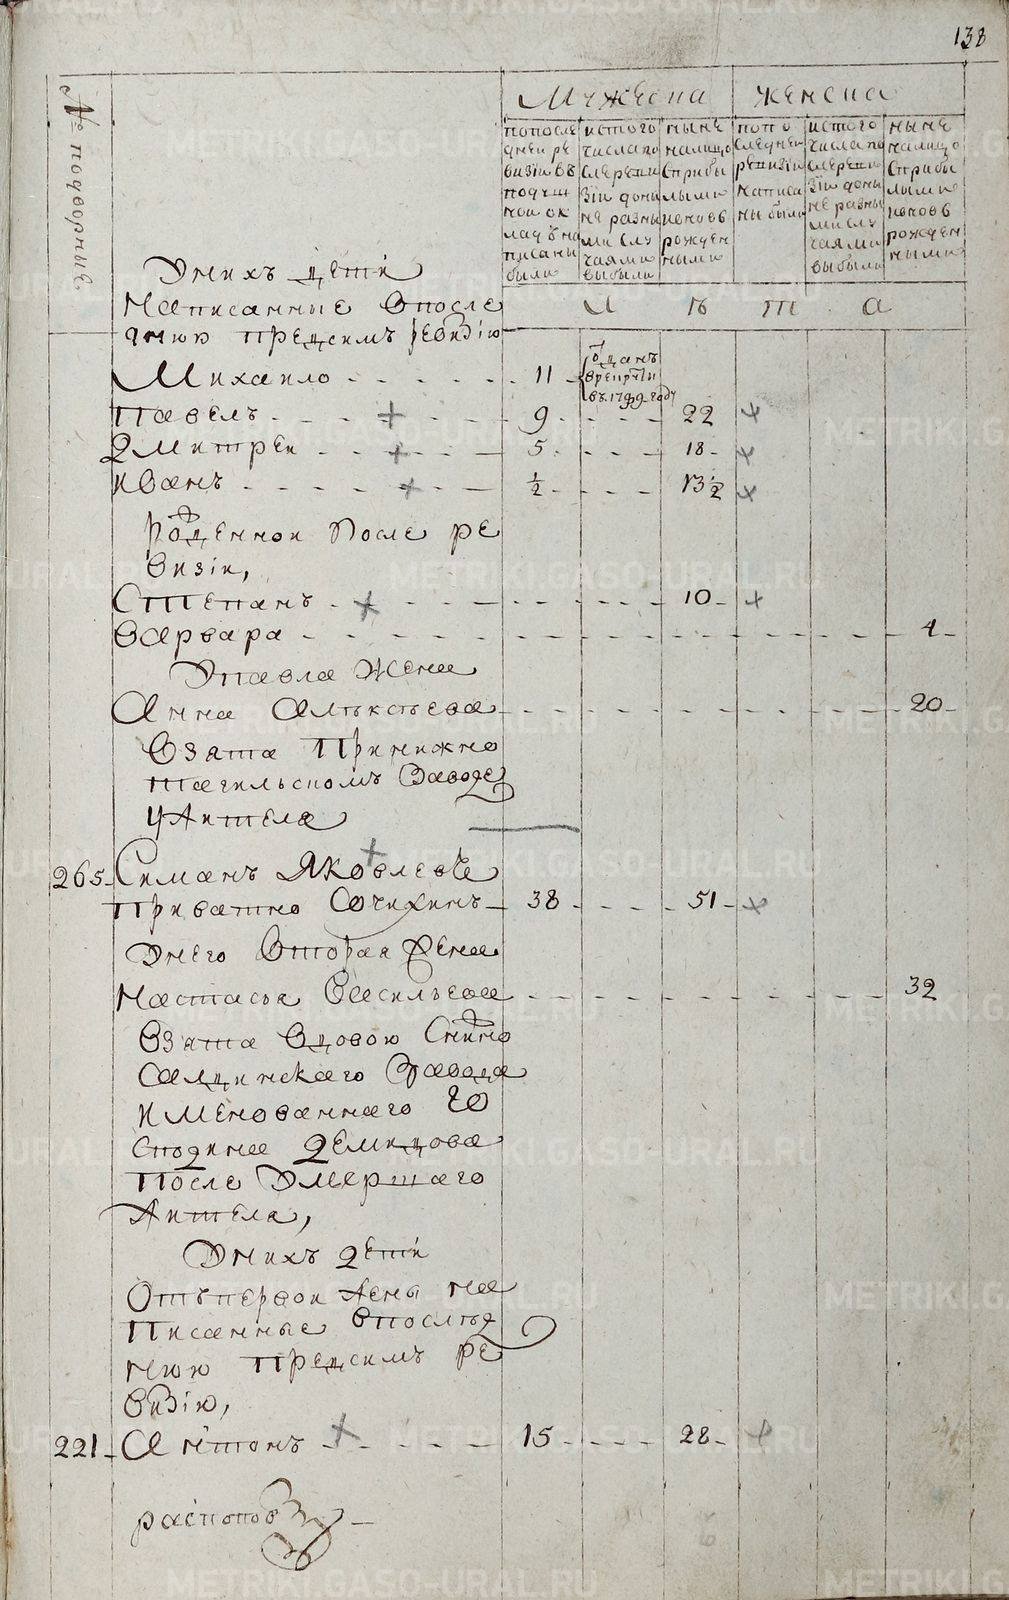 138
№ подворные
Мужеска
Женска
попосле
дней ре
визiи въ
подуш
ной ок
ладъ на
писаны
были
истого
числа по
слеревизiи
разны
ми слу
чаями
выбыли
ныне
налицо
сприбы
лыми
ивновь
рожден
ными
попо
следней
ревизiи
написа
ны были
истого
числа по
слереви
зiи
разны
ми слу
чаями
выбыли
ныне
налицо
сприбы
лыми
ивновь
рожден
ными
л ѣ т а
Унихъ дѣти
написанные впосле
днюю предсимъ ревизiю
Михайло 11 отданъ
врекруты
въ 1799 году
Павелъ 9 22
Дмитрей 5 18
Иванъ ½ 13½
Рожденной после ре
визiи,
Степанъ 10
Варвара 4
Упавла жена
Анна Алѣксѣева 20
Взята Принижно
тагильскомъ Заводе
Ужителя
265 Симанъ Яковлевъ
Приватно Сочихинъ 38 51
Унего Вторая жена
Настасья Васильева 32
Взята вдовою Снижно
Салдинскаго Завода
имѣнованнаго Го
сподина Демидова
После Умершаго
Жителя,
Унихъ дети
Отъпервой жены на
писанные впослѣд
нюю предсимъ ре
визiю,
221 Антонъ 15 28
распопов